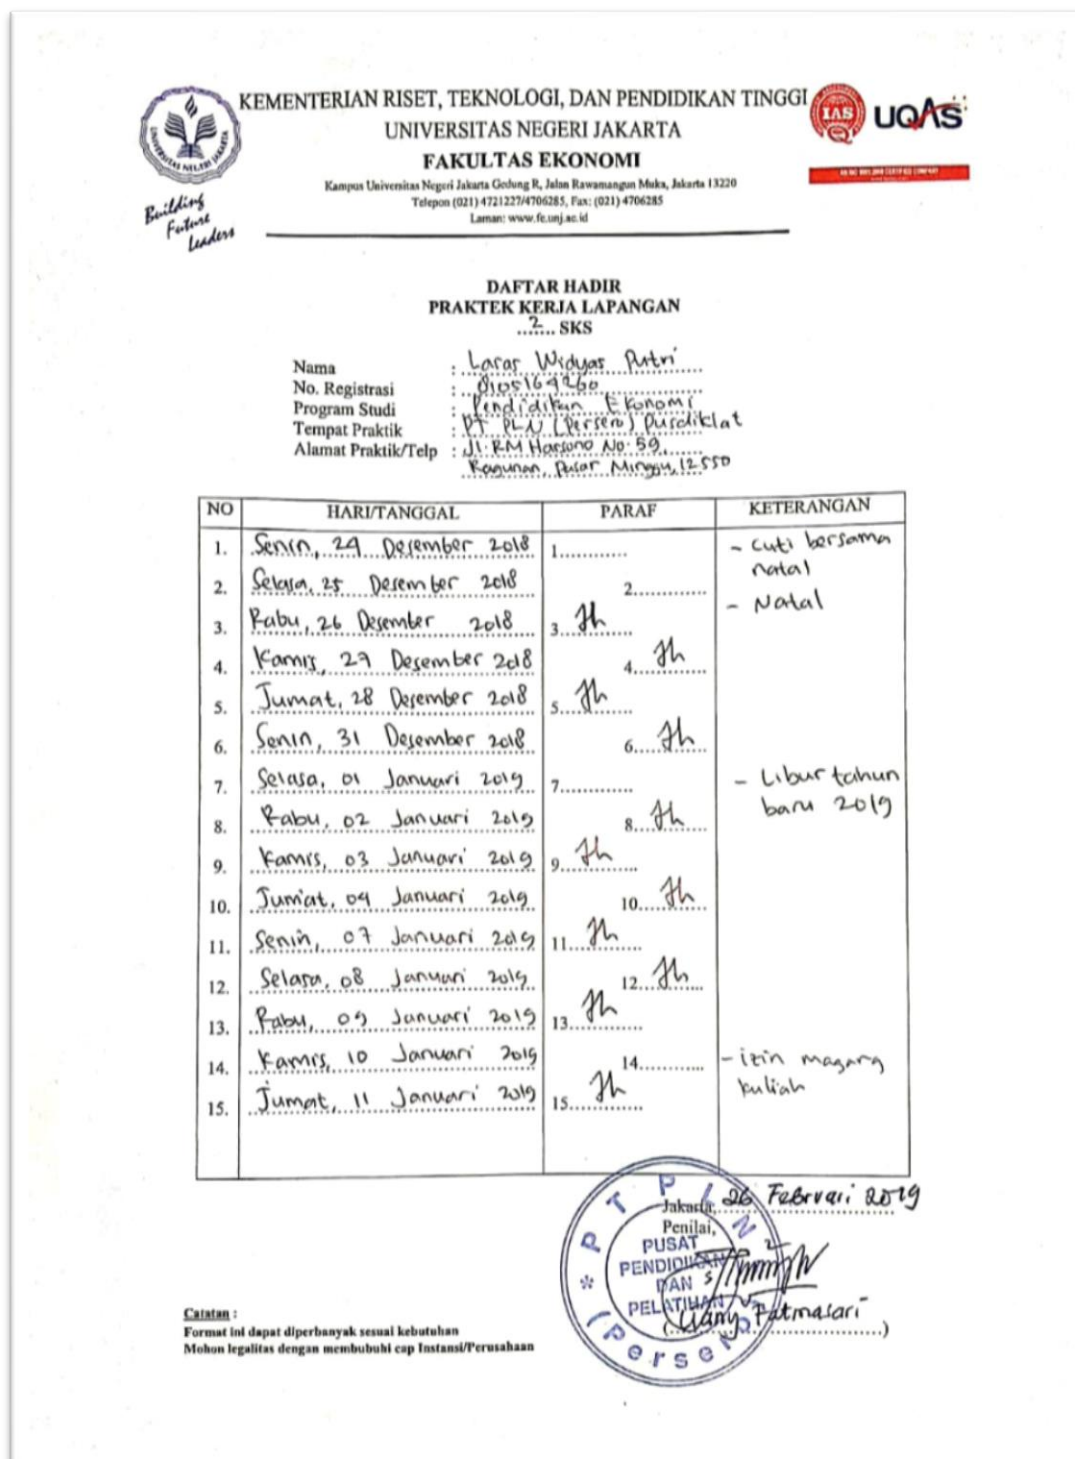 KEMENTERIAN RISET, TEKNOLOGI, DAN PENDIDIKAN TINGGI
UNIVERSITAS NEGERI JAKARTA
FAKULTAS EKONOMI
Kampus Universitas Negeri Jakarta Gedung R, Jalan Rawamangun Muka, Jakarta 13220
Telepon (021) 4721227/4706285, Fax: (021) 4706285
Laman: www.fe.unj.ac.id
UNIVERSITAS NEGERI JAKARTA
Building
Future
Leaders
IAS
UQAS
DAFTAR HADIR
PRAKTEK KERJA LAPANGAN
..2.. SKS
Nama : Laras Widyas Putri
No. Registrasi : 8105164260
Program Studi : Pendidikan Ekonomi
Tempat Praktik : PT PLN (Persero) Pusdiklat
Alamat Praktik/Telp : Jl. RM Harsono No. 59,
Ragunan, Pasar Minggu, 12550
NO HARI/TANGGAL PARAF KETERANGAN
1. Senin, 24 Desember 2018 1............ - Cuti bersama
natal
2. Selasa, 25 Desember 2018 2............ - Natal
3. Rabu, 26 Desember 2018 3............
4. Kamis, 27 Desember 2018 4............
5. Jumat, 28 Desember 2018 5............
6. Senin, 31 Desember 2018 6............
7. Selasa, 01 Januari 2019 7............ - Libur tahun
baru 2019
8. Rabu, 02 Januari 2019 8............
9. Kamis, 03 Januari 2019 9............
10. Jum'at, 04 Januari 2019 10............
11. Senin, 07 Januari 2019 11............
12. Selasa, 08 Januari 2019 12............
13. Rabu, 09 Januari 2019 13............
14. Kamis, 10 Januari 2019 14............ - izin magang
kuliah
15. Jumat, 11 Januari 2019 15............
Jakarta, 26 Februari 2019
Penilai,
PT PLN (Persero)
PUSAT
PENDIDIKAN
DAN
PELATIHAN
Fatmasari
Catatan :
Format ini dapat diperbanyak sesuai kebutuhan
Mohon legalitas dengan membubuhi cap Instansi/Perusahaan